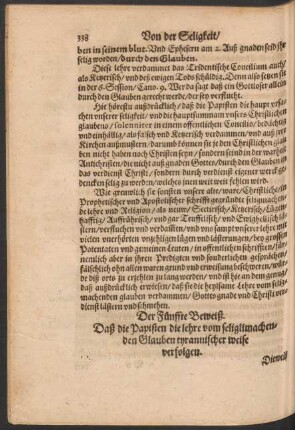 338 Von der Seligkeit/
ben in seinem blut. Und Ephesern am 2. Auß gnaden seid jhr
selig worden/durch den Glauben.
Diese lehr verdammet das Tridentische Concilium auch/
als Ketzerisch/und deß ewigen Tods schüldig. Denn also setzen sie
in der 6. Session/Cano. 9. Wer da sagt daß ein Gottloser allein
durch den Glauben gerecht werde/der sey verflucht.
Hie hörestu außdrücklich/daß die Papisten die haupt
unserer seligkeit/und die hauptsumman unsers Christlichen
glaubens/solenniter in einem offentlichen Concilio/bedächtlich
und einhällig/als falsch und Ketzerisch verdammen/und in der
Kirchen außmustern/darumb können sie je den Christlichen
nicht haben noch Christen seyn/sondern seind in der warheit
Antichristen/die nicht auß gnaden Gottes/durch den Glauben
das verdienst Christi/sondern durch verdienst eigener werck
dencken selig zu werden/welches jnen weit weit fehlen wird.
Wie greuwlich sie sonsten unsere alte/ware/Christliche/
Prophetischer und Apostolischer schrifft gegründte
de lehre und Religion/als neuw/Sectisch/Ketzerisch/Lügen
hafftig/Auffrührisch/und gar Teuffelisch/und
Kirchen/verfluchen und verdammen/und uns sampt unserer lehre mit
vielen unerhörten unchristlichen lügen und lästerungen/bey grossen
Potentaten und gemeinen leuten/in offentlichen schrifften/
aber in jhren Predigten und sonderlichen gesprächen
fälschlich ohn allen waren grund und erweisung beschweren/
es diß orts zu erzehlen zu lang werden/und ist hie an dem
daß außdrücklich erwiesen/daß sie die heylsame lehre vom selig
machenden glauben verdammen/Gottes gnade und Christi ver
dienst lästern und schmehen.
Der Fünffte Beweiß.
Daß die Papisten die lehre vom seligmachen,
den Glauben tyrannischer weise
verfolgen.
Dieweil